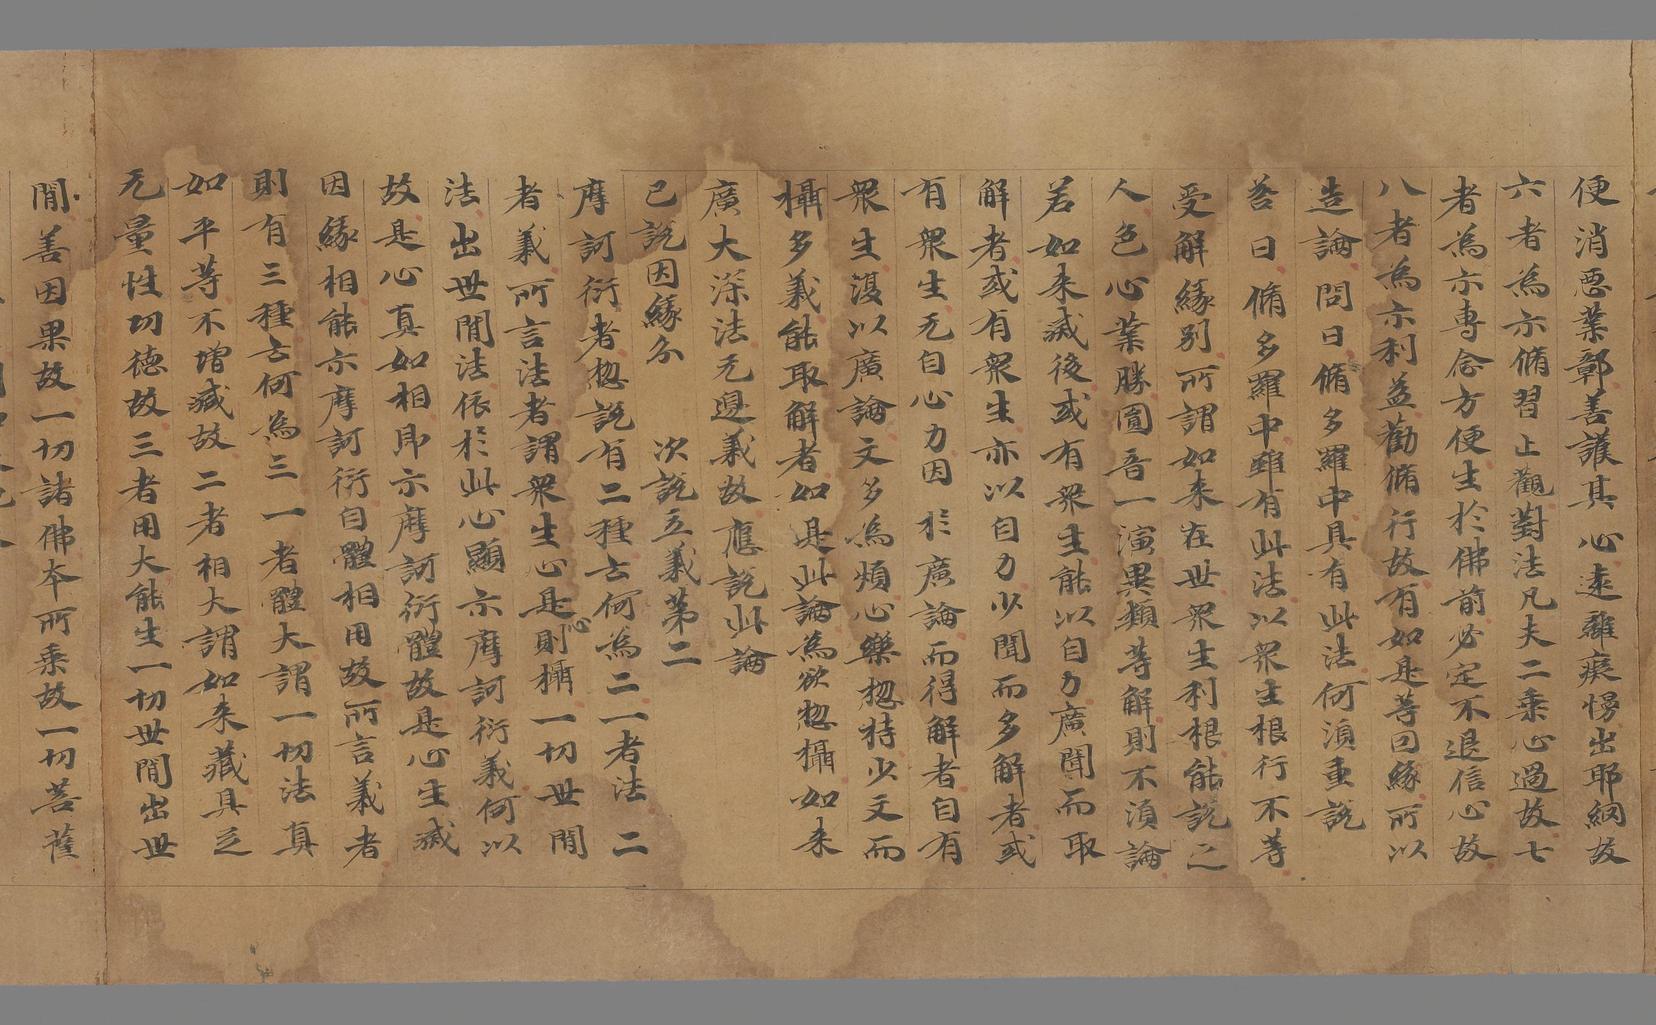 便消惡業鄣善護其心遠離癡慢出耶網故
六者為示脩習止觀對治凡夫二乘心過故七
者為示專念方便生於佛前必定不退信心故
八者為示利益勸脩行故有如是等因緣所以
造論問曰脩多羅中具有此法何湏重說
荅曰脩多羅中雖有此法以衆生根行不等
受解緣別所謂如来在世衆生利根能說之
人色心業勝圓音一演異類等解則不湏論
若如来滅後或有衆生能以自力廣聞而取
解者或有衆生亦以自力少聞而多解者或
有衆生无自心力因於廣論而得解者自有
衆生復以廣論文多為煩心樂惣持少文而
攝多義能取解者如是此論為欲惣攝如来
廣大深法无邊義故應說此論
已說因緣分　次說立義第二
摩訶衍者惣說有二種云何為二一者法二
者義所言法者謂衆生心是心則攝一切世間
法出世間法依於此心顯示摩訶衍義何以
故是心真如相即示摩訶衍體故是心生滅
因緣相能示摩訶衍自體相用故所言義者
則有三種云何為三一者體大謂一切法真
如平等不增減故二者相大謂如来藏具乏
无量性功德故三者用大能生一切世間出世
間善因果故一切諸佛本所乘故一切菩薩